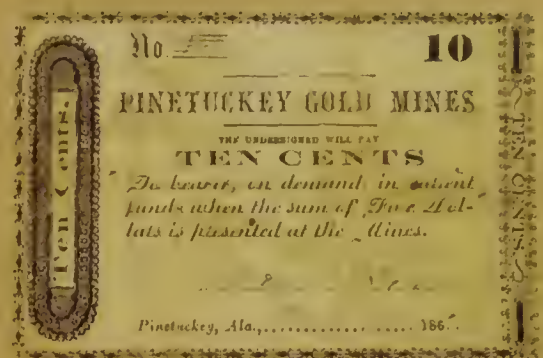 No.
10
PINETUCKEY GOLD MINES
THE UNDERSIGNED WILL PAY
TEN CENTS
To bearer, on demand, in current
funds when the sum of Five Dol-
lars is presented at the Mines.
Pinetuckey, Ala., 186
Ten Cents.
TEN CENTS